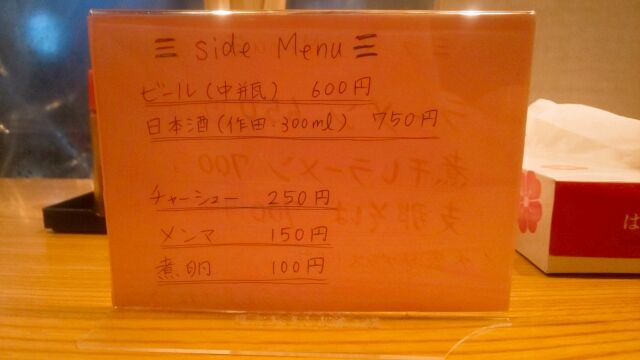 三 side Menu 三
ビール(中瓶) 600円
日本酒(作田・300ml) 750円
チャーシュー 250円
メンマ 150円
煮卵 100円
は